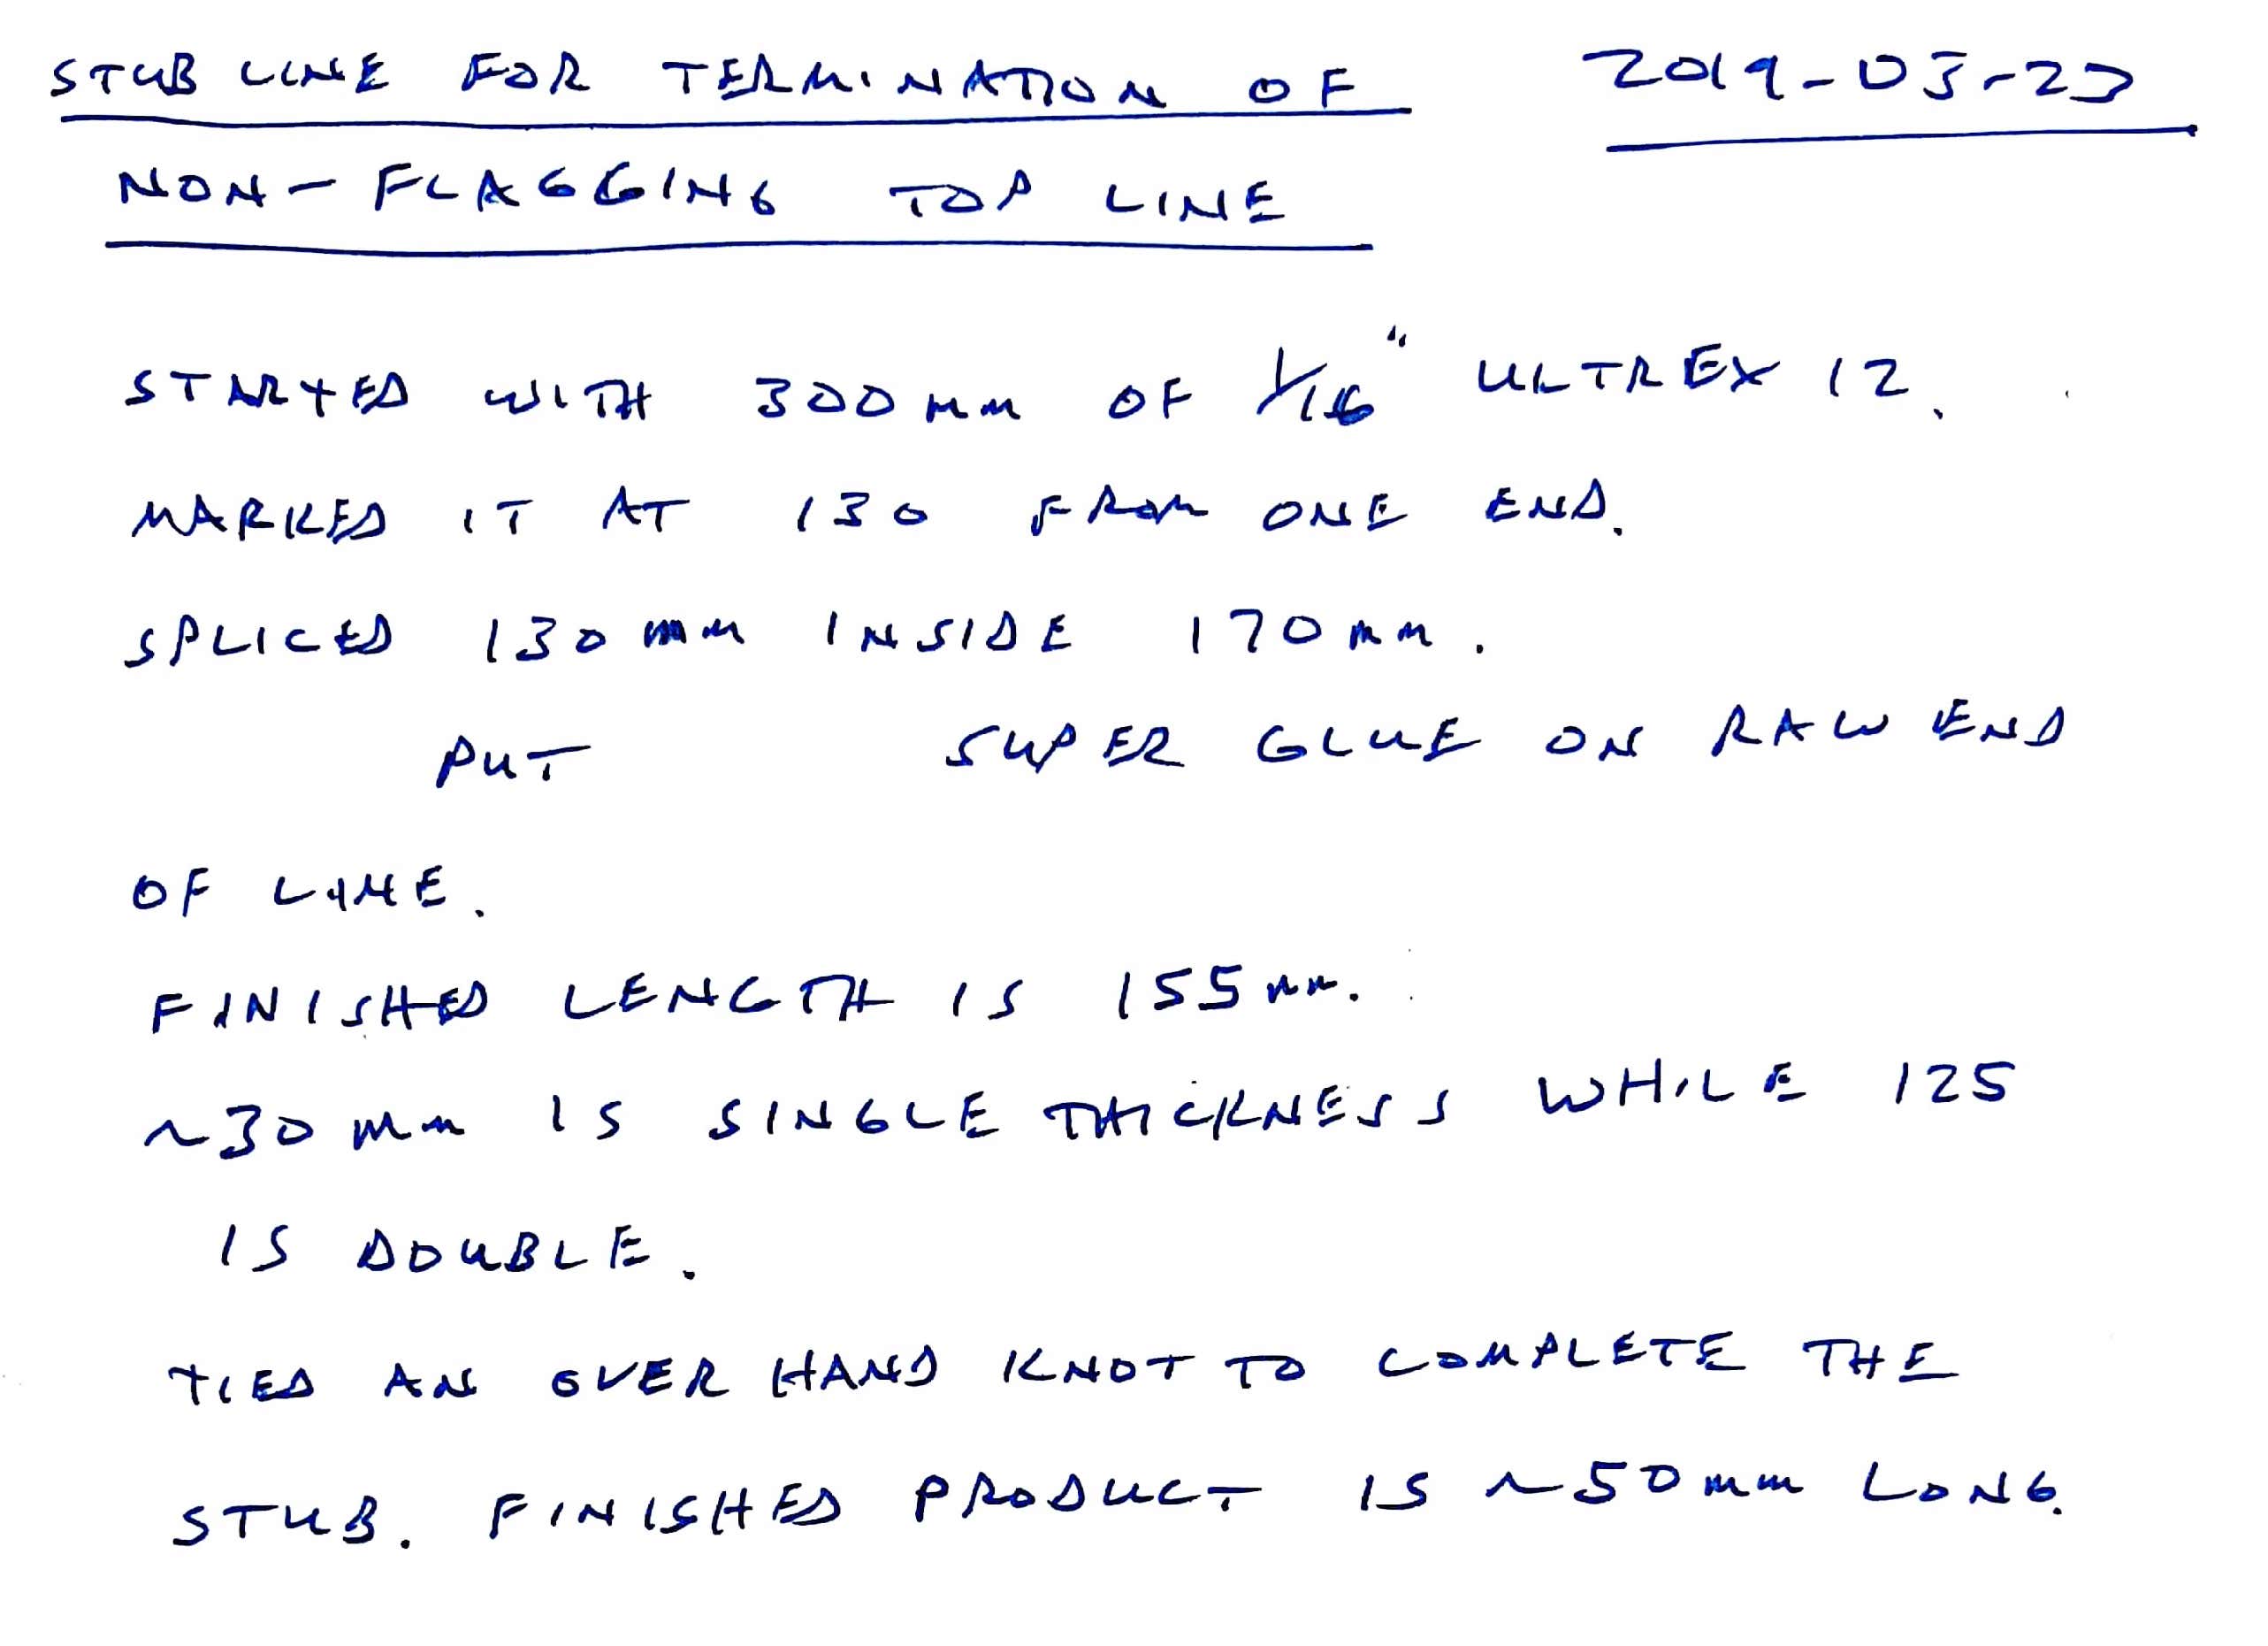 STUB LINE FOR TERMINATION OF 2019-03-23
NON-FLAGGING TOP LINE
STARTED WITH 300MM OF 1/16" ULTREX 12.
MARKED IT AT 130 FROM ONE END.
SPLICED 130 MM INSIDE 170MM.
PUT SUPER GLUE ON RAW END
OF LINE.
FINISHED LENGTH IS 155MM.
~30MM IS SINGLE THICKNESS WHILE 125
IS DOUBLE.
TIED AN OVER HAND KNOT TO COMPLETE THE
STUB. FINISHED PRODUCT IS ~50MM LONG.